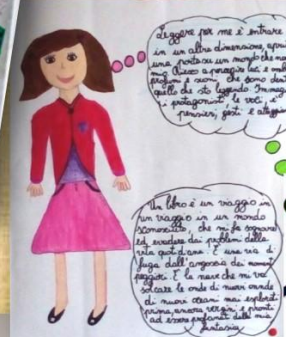 Leggere per me è entrare
in un altra dimensione, aprire
una porta su un mondo che non
mio. Riesco a percepire luci e
profumi e suoni che sono dentro
quello che sto leggendo. Immagino
i protagonisti le voci, i
pensieri, gesti e
Un libro è un viaggio in
un viaggio in un mondo
sconosciuto, che mi fa sognare
ed evadere dai problemi della
vita quotidiana. È una via di
fuga dall'angoscia dei momenti
peggiori. È la nave che mi fa
solcare le onde di nuovi
di nuovi oceani mai esplorati
prima, ancora vergini e pronti
ad essere profanati dalla mia
fantasia